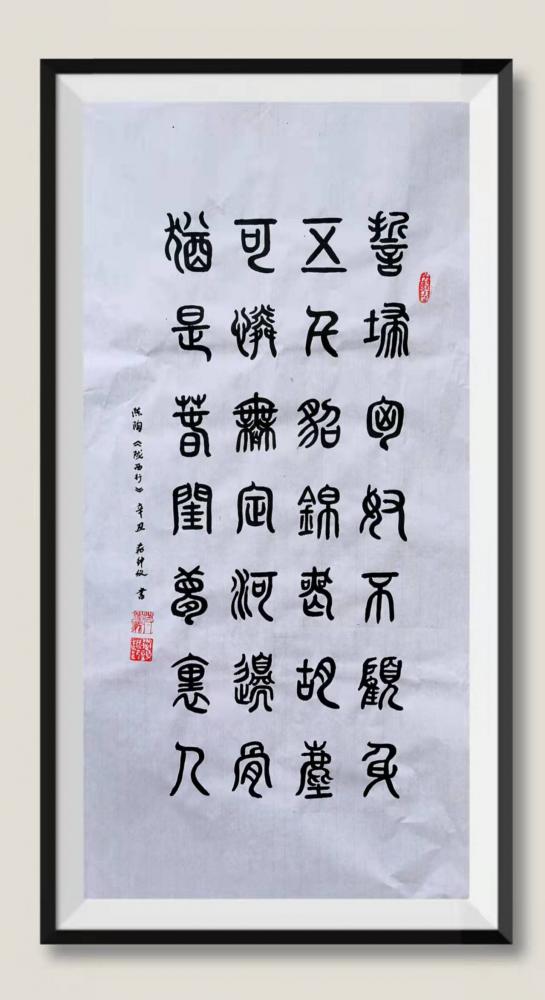 誓掃匈奴不顧身
五千貂錦喪胡塵
可憐無定河邊骨
猶是春閨夢裏人
陈陶《陇西行》辛丑 书